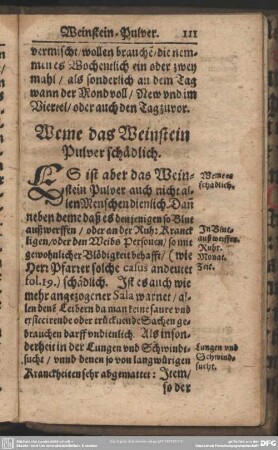 Weinstein-Pulver. 111
vermischt/wollen brauchẽ/die nem-
men es Wochentlich ein oder zwey
mahl/ als sonderlich an dem Tag
wann der Mond voll/ New vnd im
Viertel/ oder auch den Tag zuvor.
Weme das Weinstein
Pulver schädlich.
ES ist aber das Wein-
stein Pulver auch nicht al-
len Menschen dienlich. Dañ
neben deme daß es denjenigen so Blut
außwerffen/ oder an der Ruhr Kranck
ligen/oder den Weibs Personen/ so mit
gewohnlicher Blödigkeit behafft/ (wie
Herr Pfarrer solche casus andeutet
fol. 19.) schädlich. Ist es auch wie
mehr angezogener Sala warnet/ al-
len denẽ Leibern da man keine saure vnd
erstecirende oder trückuende Sachen ge-
brauchen darff vndienlich. Als inson-
derheit in der Lungen vnd Schwind-
sucht/ vnnd denen so von langwürigen
Kranckheiten sehr abgemattet: Item/
so der
Weme es
schädlich.
In Blut-
außwerffen.
Ruhr.
Monat-
Zeit.
Lungen vnd
Schwind-
sucht.